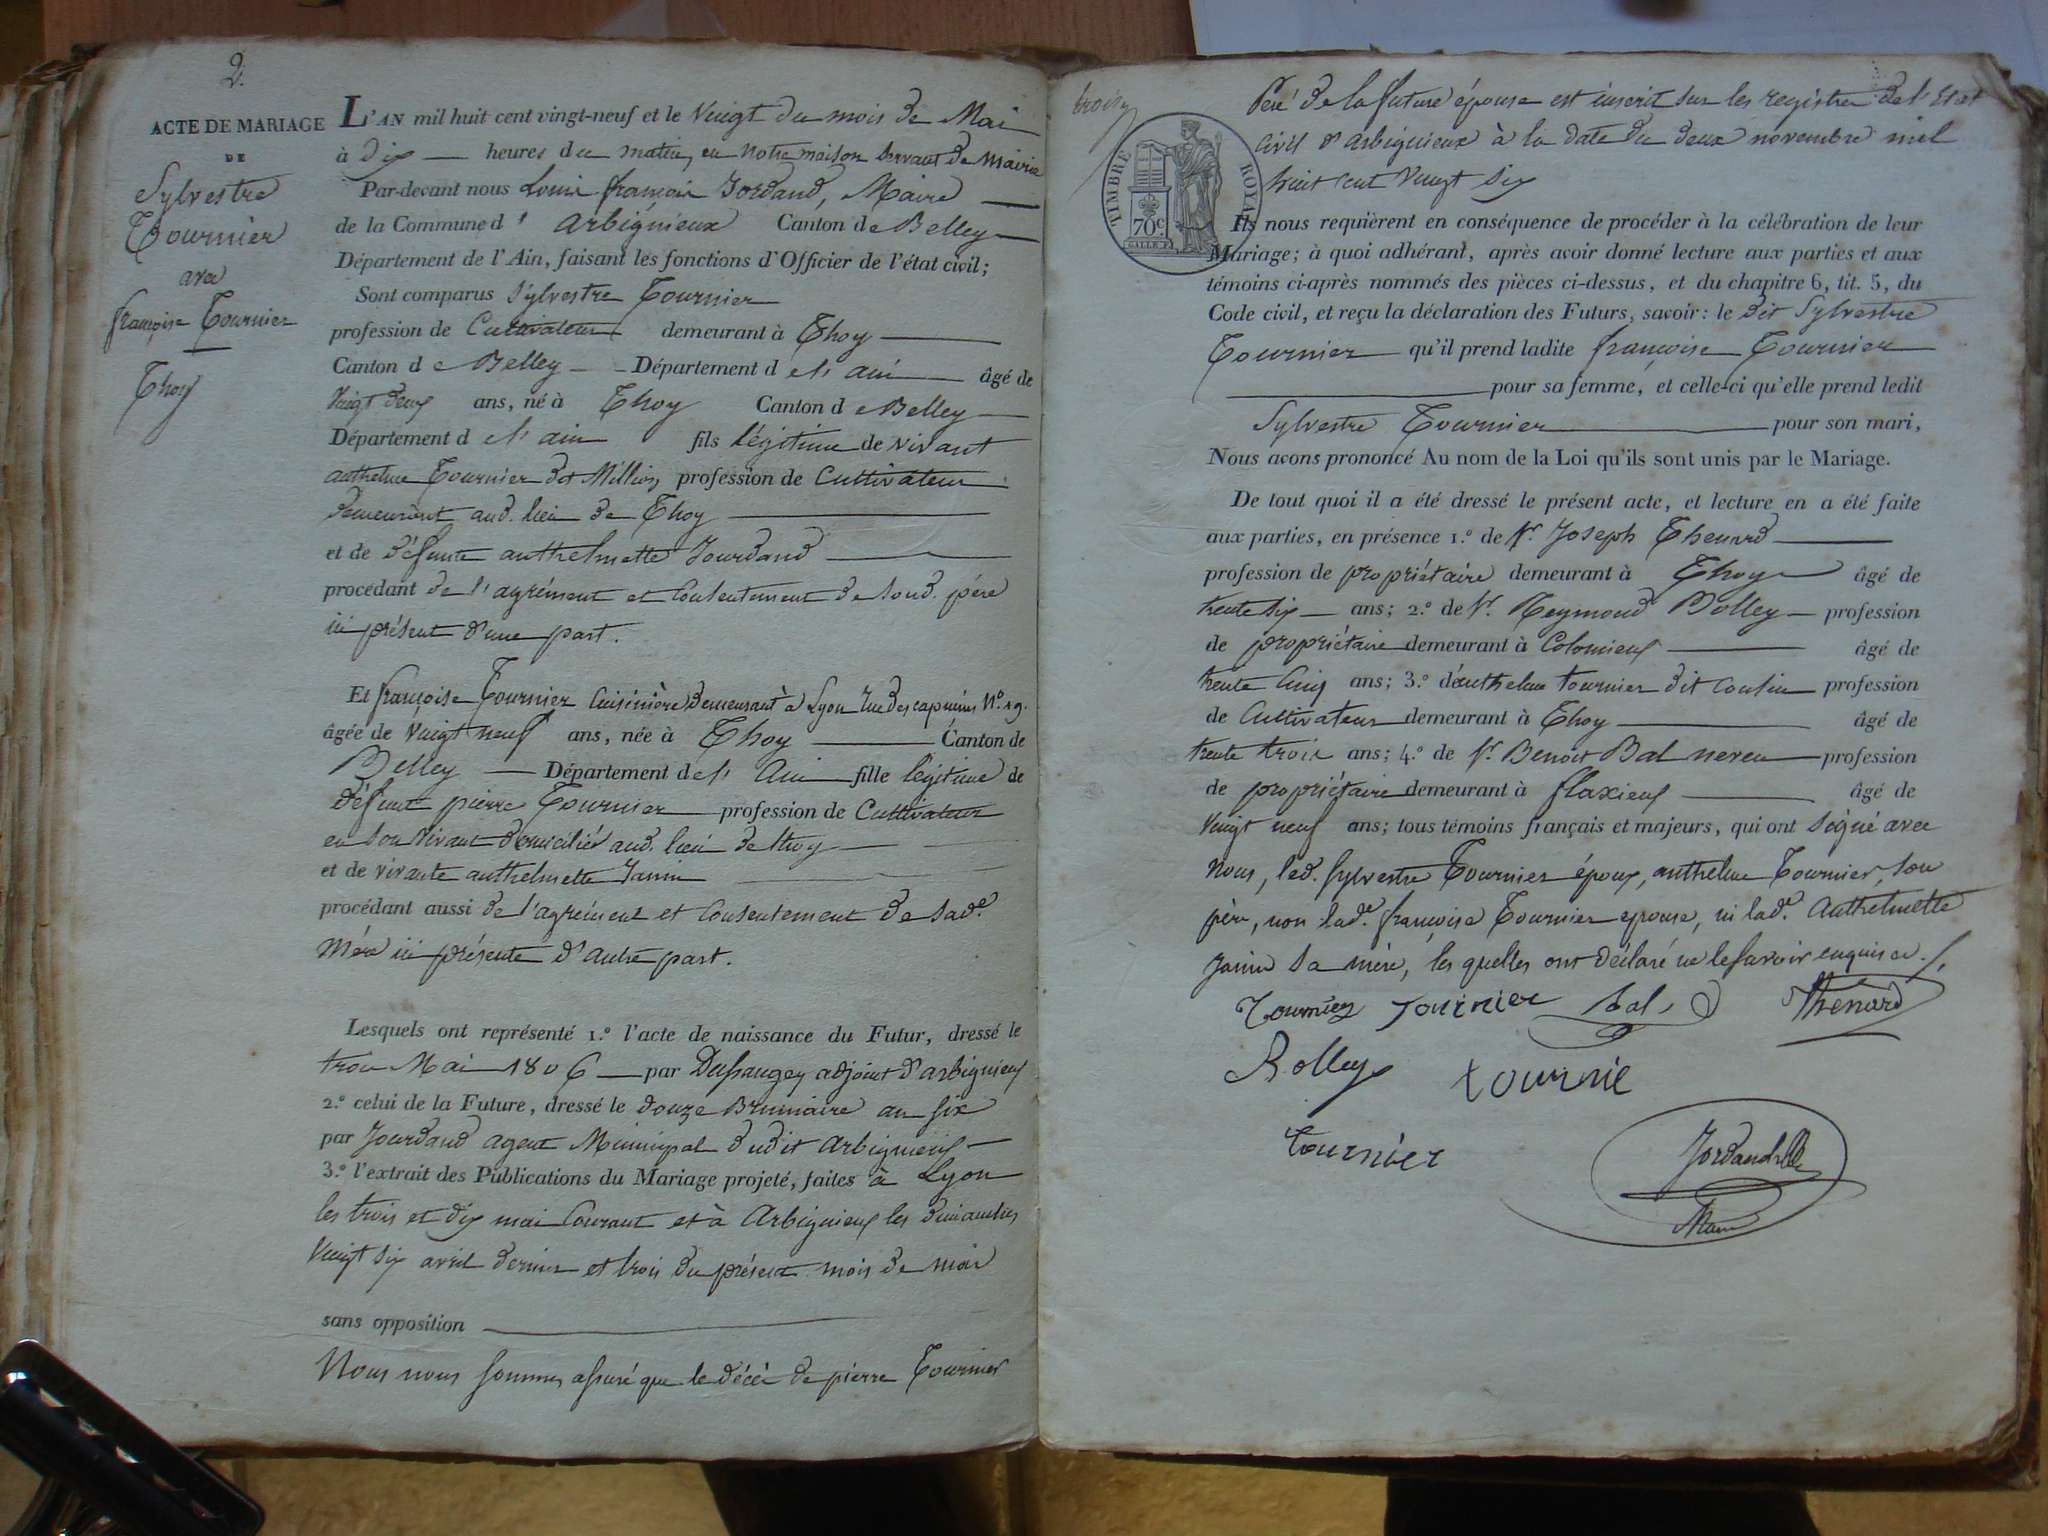 2.
ACTE DE MARIAGE
DE
Sylvestre
Tournier
avec
françoise Tournier
Thoy
L'AN mil huit cent vingt-neuf et le Vingt du mois de Mai
à dix heures du matin, en notre maison servant de mairie
Par-devant nous Louis françois Jordand, Maire
de la Commune d' Arbignieux Canton de Belley
Département de l'Ain, faisant les fonctions d'Officier de l'état civil;
Sont comparus Sylvestre Tournier
profession de Cultivateur demeurant à Thoy
Canton de Belley Département de l'ain âgé de
Vingt deux ans, né à Thoy Canton de Belley
Département de l'ain fils légitime de vivant
anthelme Tournier dit Million, profession de Cultivateur
demeurant aud. lieu de Thoy
et de défunte anthelmette Jourdand
procédant de l'agrément et Consentement de soud. père
ici présent d'une part.
Et françoise Tournier Cuisinière demeurant à Lyon rue des capucins N° 19.
âgée de Vingt neuf ans, née à Thoy Canton de
Belley Département de l' Ain fille légitime de
défunt pierre Tournier profession de Cultivateur
en son vivant domicilié aud. lieu de thoy
et de vivante anthelmette Janin
procédant aussi de l'agrément et Consentement de sade
Mère ici présente d'autre part.
Lesquels ont représenté 1.° l'acte de naissance du Futur, dressé le
trois Mai 1806 par Dufaugey adjoint d'arbignieux
2.° celui de la Future, dressé le douze Brumaire an six
par Jourdand agent Municipal dudit arbignieux
3.° l'extrait des Publications du Mariage projeté, faites à Lyon
les trois et dix mai Courant et à Arbignieux les dimanches
Vingt six avril dernier et trois du présent mois de mai
sans opposition
Nous nous sommes assuré que le décès de pierre Tournier
trois
TIMBRE ROYAL
70c
Père de la future épouse est inscrit sur les registres de l'Etat
civil d'arbignieux à la date du deux novembre mil
huit cent vingt six
Ils nous requièrent en conséquence de procéder à la célébration de leur
Mariage; à quoi adhérant, après avoir donné lecture aux parties et aux
témoins ci-après nommés des pièces ci-dessus, et du chapitre 6, tit. 5, du
Code civil, et reçu la déclaration des Futurs, savoir: le dit Sylvestre
Tournier qu'il prend ladite françoise Tournier
pour sa femme, et celle-ci qu'elle prend ledit
Sylvestre Tournier pour son mari,
Nous avons prononcé Au nom de la Loi qu'ils sont unis par le Mariage.
De tout quoi il a été dressé le présent acte, et lecture en a été faite
aux parties, en présence 1.° de Sr. Joseph Thenard
profession de propriétaire demeurant à Thoy âgé de
trente six ans; 2.° de Sr. Reymond Bolley profession
de propriétaire demeurant à Colomieux âgé de
trente cinq ans; 3.° d'anthelme tournier dit Cousin profession
de Cultivateur demeurant à Thoy âgé de
trente trois ans; 4.° de Sr. Benoit Bal neveu profession
de propriétaire demeurant à flaxieux âgé de
vingt neuf ans; tous témoins français et majeurs, qui ont signé avec
nous, led. Sylvestre Tournier époux, anthelme Tournier, son
père, non lade. françoise Tournier epouse, ni lade. Anthelmette
Janin sa mère, les quelles ont déclaré ne le savoir enquises.
Tournier Tournier Bal Thenard
Bolley tournie
tournier
Jordand
Maire